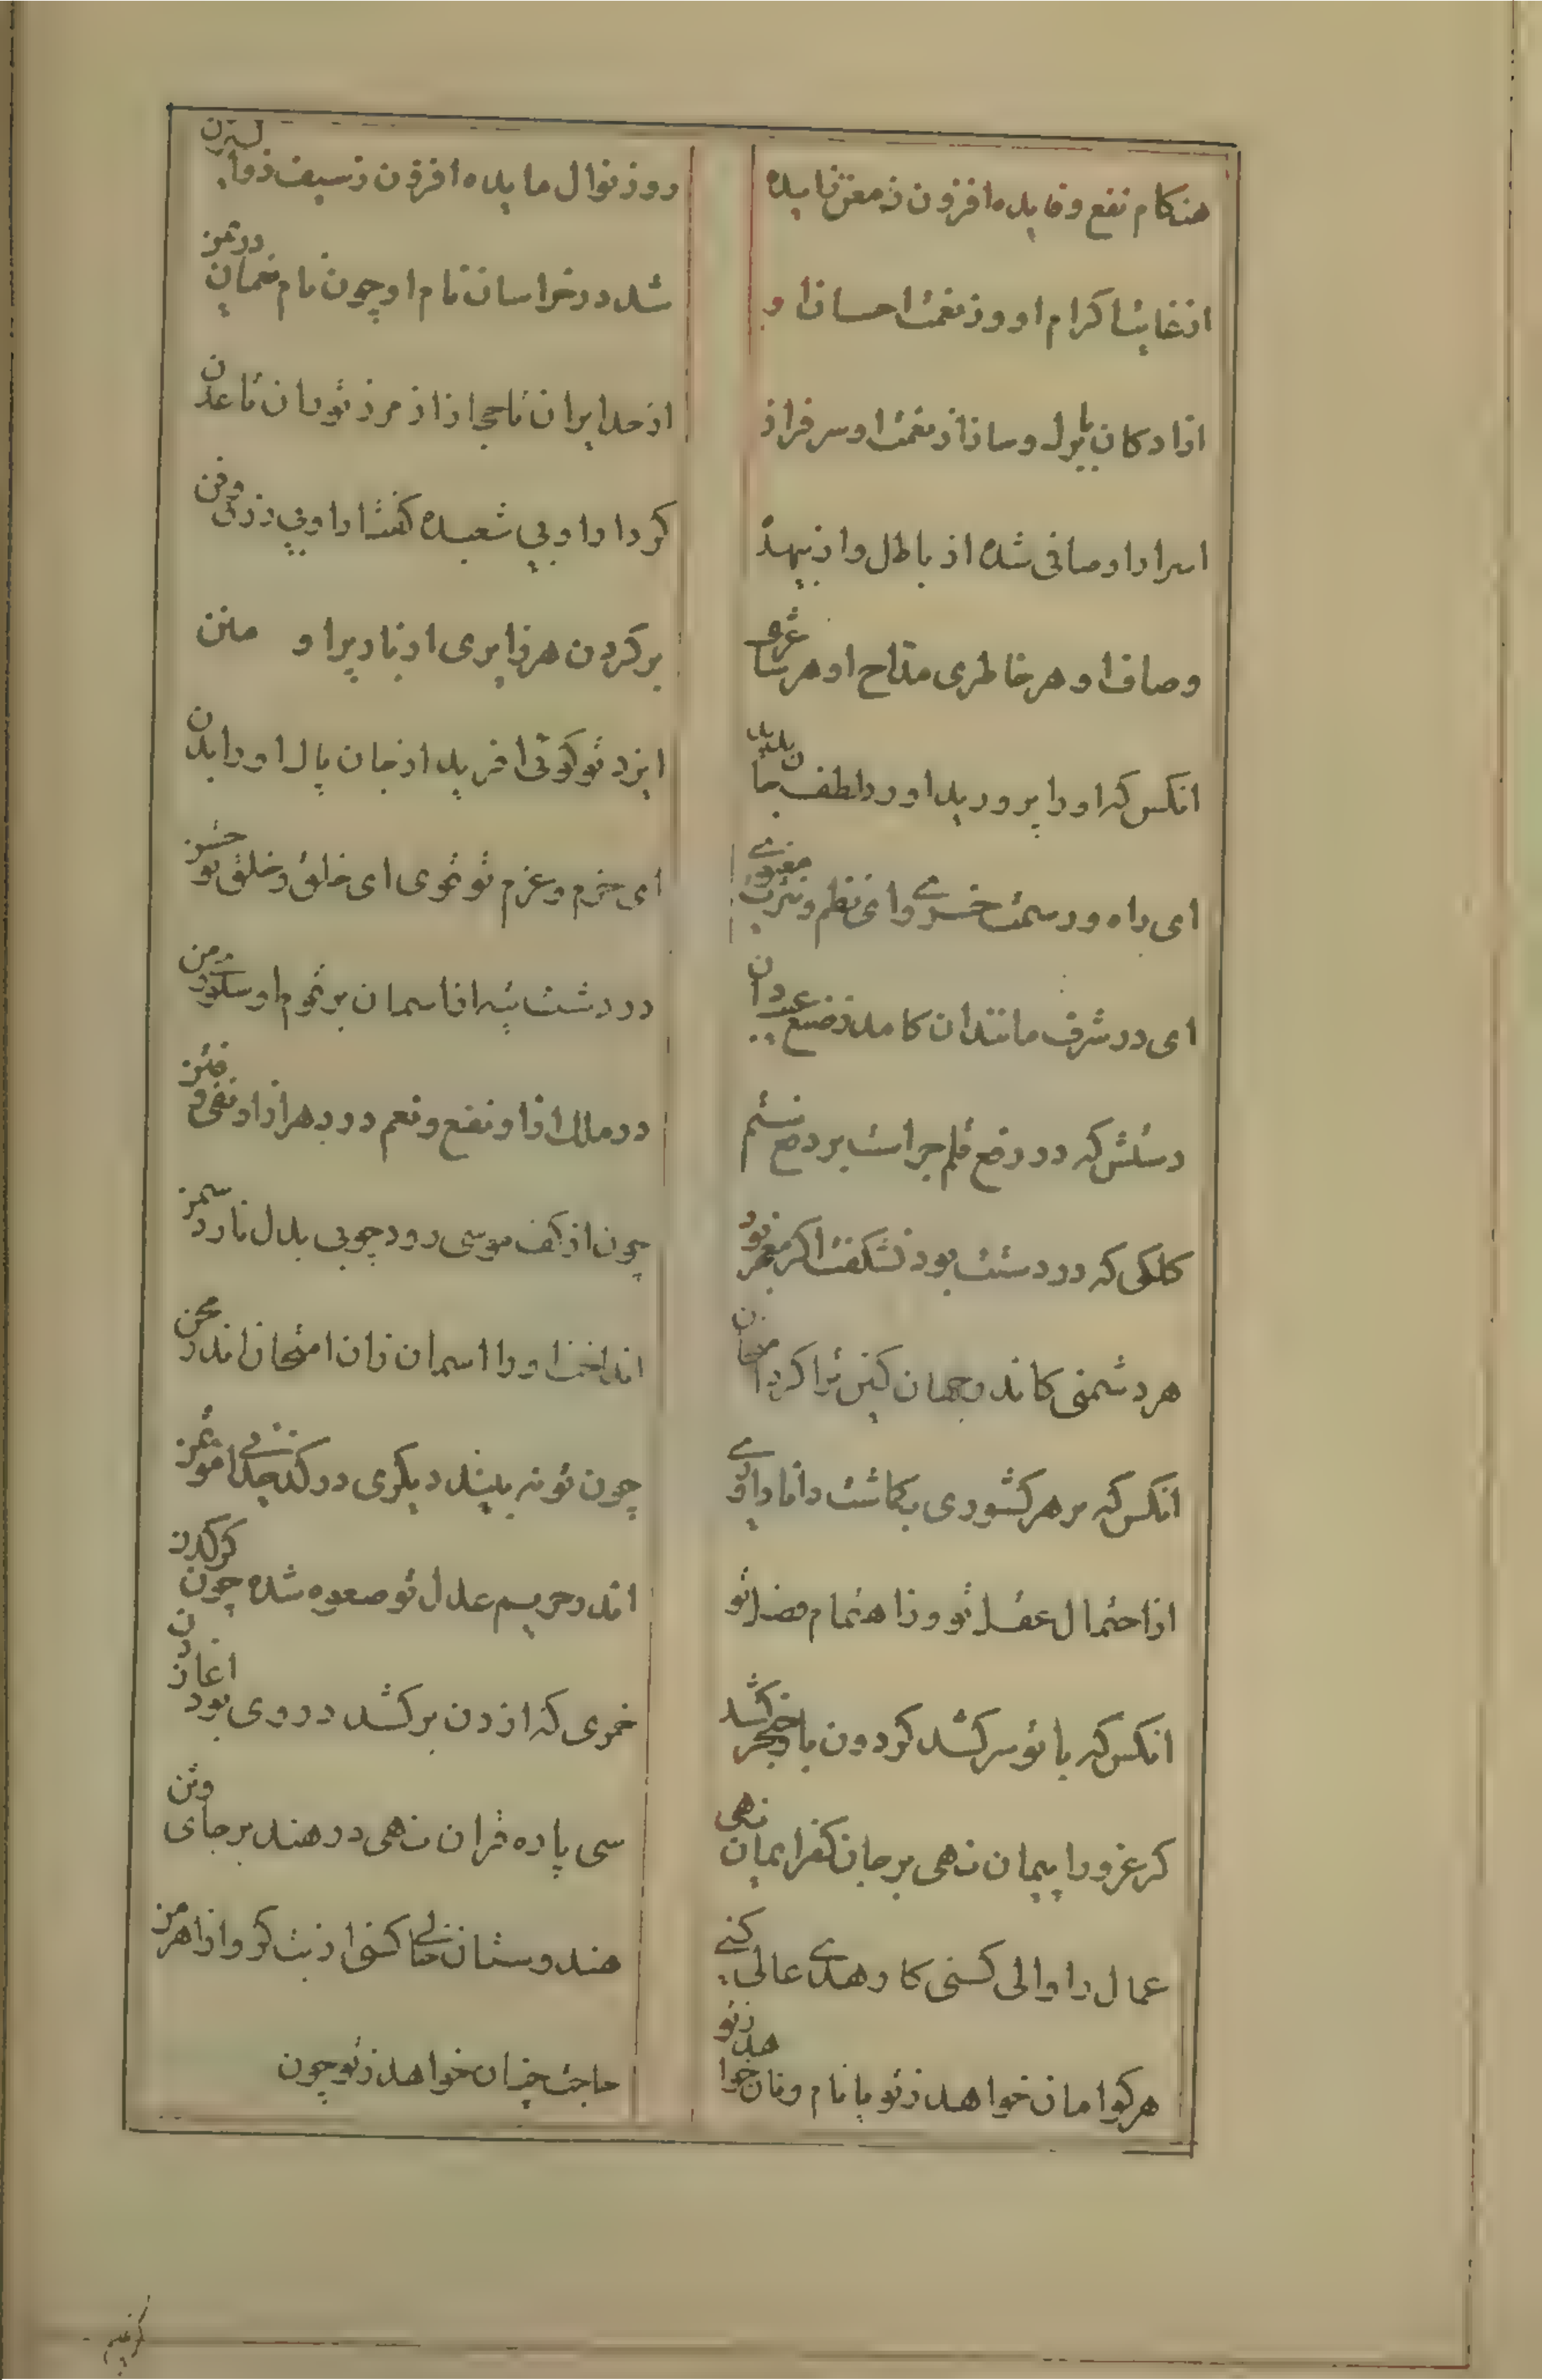 هنکام نفع و فایده افزون ز معن زایده
روز نوال مایده افزون ز سیف ذو لیزن
از غایت اکرام او وز نعمت احسان او
شد در خراسان نام او چون نام نعمان در یمن
ازادکان با برک و ساز از نعمت او سرفراز
از حد ایران تا حجاز از مرز توران تا عدن
اسرار او صافی شده از باطل و از بیهده
کردار او بی شعبده کفتار او بی زرق و فن
وصاف او هر خاطری مداح او هر شاعری
بر کردن هر زایری از بار بر او منن
انکس که او را پرورید اورد لطف جان پدید
ایزد تو کوئی افرید از جان پاک او را بدن
ای راه و رسمت خسروی وای نظم و نثرت معنوی
ای حزم و عزم تو قوی ای خلق و خلق تو حسن
ای در شرف مانند ان کامد ز صنع غیب دان
در دشت تیه از اسمان بر قوم او سلوی و من
دستش که در رفع قلم چیر است بر دفع ستم
در ملک ازاو نفع و نعم در دهر ازاو نفی فتن
کلکی که در دستت بود نشکفت اکر معجز نمود
چون از کف موسی رود چوبی بدل نارد سمن
هر دشمنی کاندر جهان کین ترا کرد امتحان
انداخت او را اسمان زان امتحان اندر محن
انکس که بر هر کشوری بکماشت دانا داوری
چون تو نه بیند دیکری در کدخدائی موتمن
از احتمال عقل تو وز اهتمام فضل تو
اندر حریم عدل تو صعوه شده چون کرکدن
انکس که با تو سر کشد کردون بر او خنجر کشد
خمری که از دن برکشد در وی بود اغاز دن
کر غزو را پیمان نهی بر جان کفر ایمان نهی
سی پاره قران نهی در هند بر جای وثن
عمال را والی کنی کار هدی عالی کنی
هندوستان خالی کنی از بت کر و از اهرمن
هرکو امان خواهد ز تو یا نام و نان خواهد ز تو
حاجت چنان خواهد ز تو چون